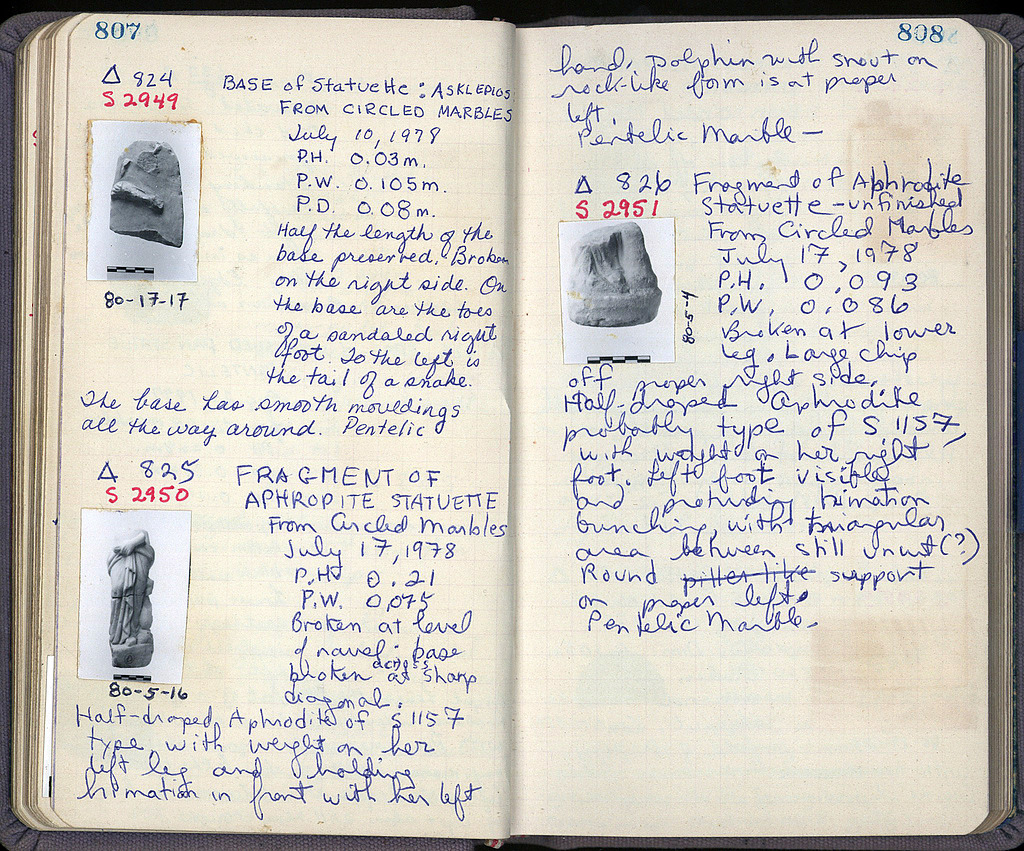 807
Δ 824
S 2949
BASE of Statuette : ASKLEPIOS
FROM CIRCLED MARBLES
July 10, 1978
P.H. 0.03m.
P.W. 0.105m.
P.D. 0.08m.
Half the length of the
base preserved. Broken
on the right side. On
the base are the toes
of a sandaled right
foot. To the left is
the tail of a snake.
The base has smooth mouldings
all the way around. Pentelic
80-17-17
Δ 825
S 2950
FRAGMENT OF
APHRODITE STATUETTE
From Circled Marbles
July 17, 1978
P.H. 0.21
P.W. 0,075
Broken at level
of navel; base
broken across at sharp
diagonal.
80-5-16
Half-draped Aphrodite of S 1157
type with weight on her
left leg and holding
himation in front with her left
808
hand. Dolphin with snout on
rock-like form is at proper
left.
Pentelic Marble —
Δ 826
S 2951
Fragment of Aphrodite
Statuette - unfinished
From Circled Marbles
July 17, 1978
P.H. 0,093
P.W. 0.086
Broken at lower
leg. Large chip
80-5-4
off proper right side.
Half-draped Aphrodite
probably type of S 1157,
with weight on her right
foot. Left foot visible
and protruding himation
bunching with triangular
area between still uncut (?)
Round pillar-like support
on proper left.
Pentelic Marble.